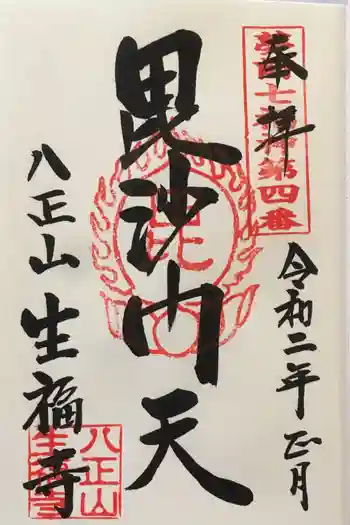 奉拝
第四番
令和二年正月
毘沙門天
毘
八正山 生福寺
八正山
生福寺